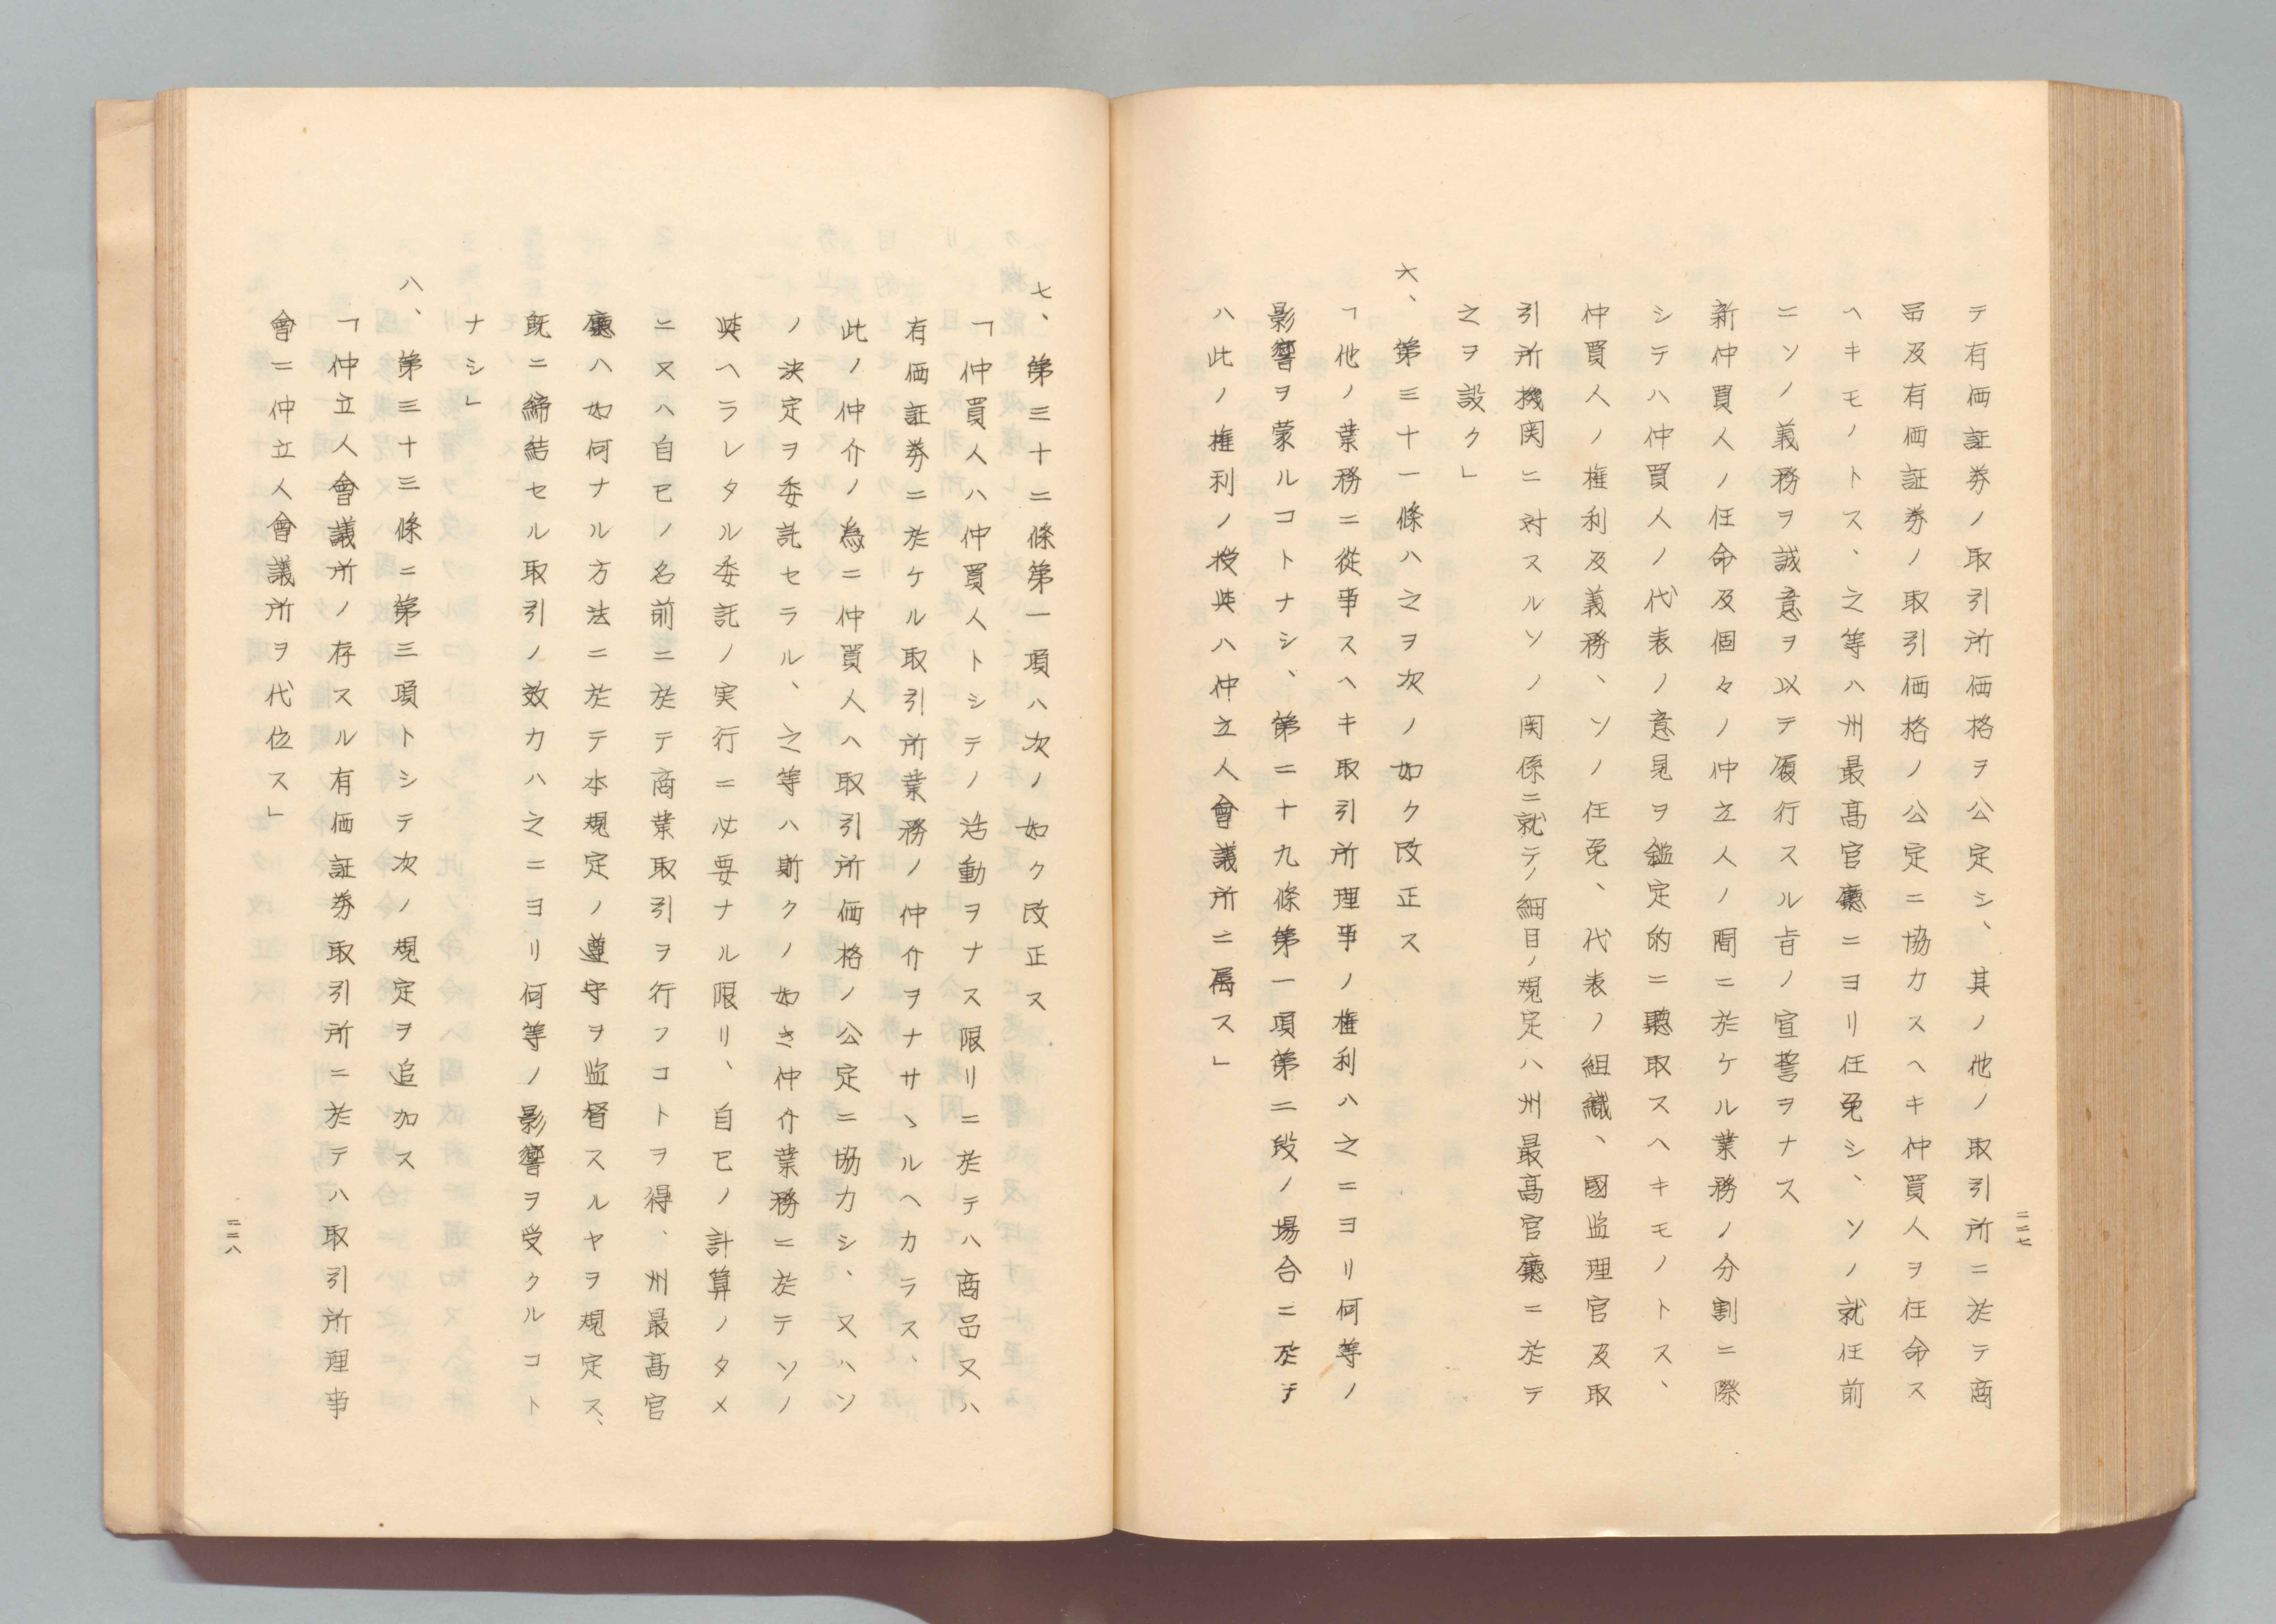 テ有価証券ノ取引所価格ヲ公定シ、其ノ他ノ取引所ニ於テ商
品及有価証券ノ取引価格ノ公定ニ協力スヘキ仲買人ヲ任命ス
ヘキモノトス、之等ハ州最高官廳ニヨリ任免シ、ソノ就任前
ニソノ義務ヲ誠意ヲ以テ履行スル旨ノ宣誓ヲナス
新仲買人ノ任命及個々ノ仲立人ノ間ニ於ケル業務ノ分割ニ際
シテハ仲買人ノ代表ノ意見ヲ鑑定的ニ聽取スヘキモノトス、
仲買人ノ権利及義務、ソノ任免、代表ノ組織、國監理官及取
引所機関ニ対スルソノ関係ニ就テノ細目ノ規定ハ州最高官廳ニ於テ
之ヲ設ク」
六、第三十一條ハ之ヲ次ノ如ク改正ス
「他ノ業務ニ從事スヘキ取引所理事ノ権利ハ之ニヨリ何等ノ
影響ヲ蒙ルコトナシ、第二十九條第一項第二段ノ場合ニ於テ
ハ此ノ権利ノ授與ハ仲立人會議所ニ属ス」
二二七
七、第三十二條第一項ハ次ノ如ク改正ス
「仲買人ハ仲買人トシテノ活動ヲナス限リニ於テハ商品又ハ
有価証券ニ於ケル取引所業務ノ仲介ヲナサヽルヘカラス、
此ノ仲介ノ為ニ仲買人ヘ取引所価格ノ公定ニ協力シ、又ハソ
ノ決定ヲ委託セラル、之等ハ斯クノ如き仲介業務ニ於テソノ
與ヘラレタル委託ノ実行ニ必要ナル限リ、自己ノ計算ノタメ
ニ又ハ自己ノ名前ニ於テ商業取引ヲ行フコトヲ得、州最高官
廳ハ如何ナル方法ニ於テ本規定ノ遵守ヲ監督スルヤヲ規定ス、
既ニ締結セル取引ノ效力ハ之ニヨリ何等ノ影響ヲ受クルコト
ナシ」
八、第三十三條ニ第三項トシテ次ノ規定ヲ追加ス
「仲立人會議所ノ存スル有価証券取引所ニ於テハ取引所理事
會ニ仲立人會議所ヲ代位ス」
二二八